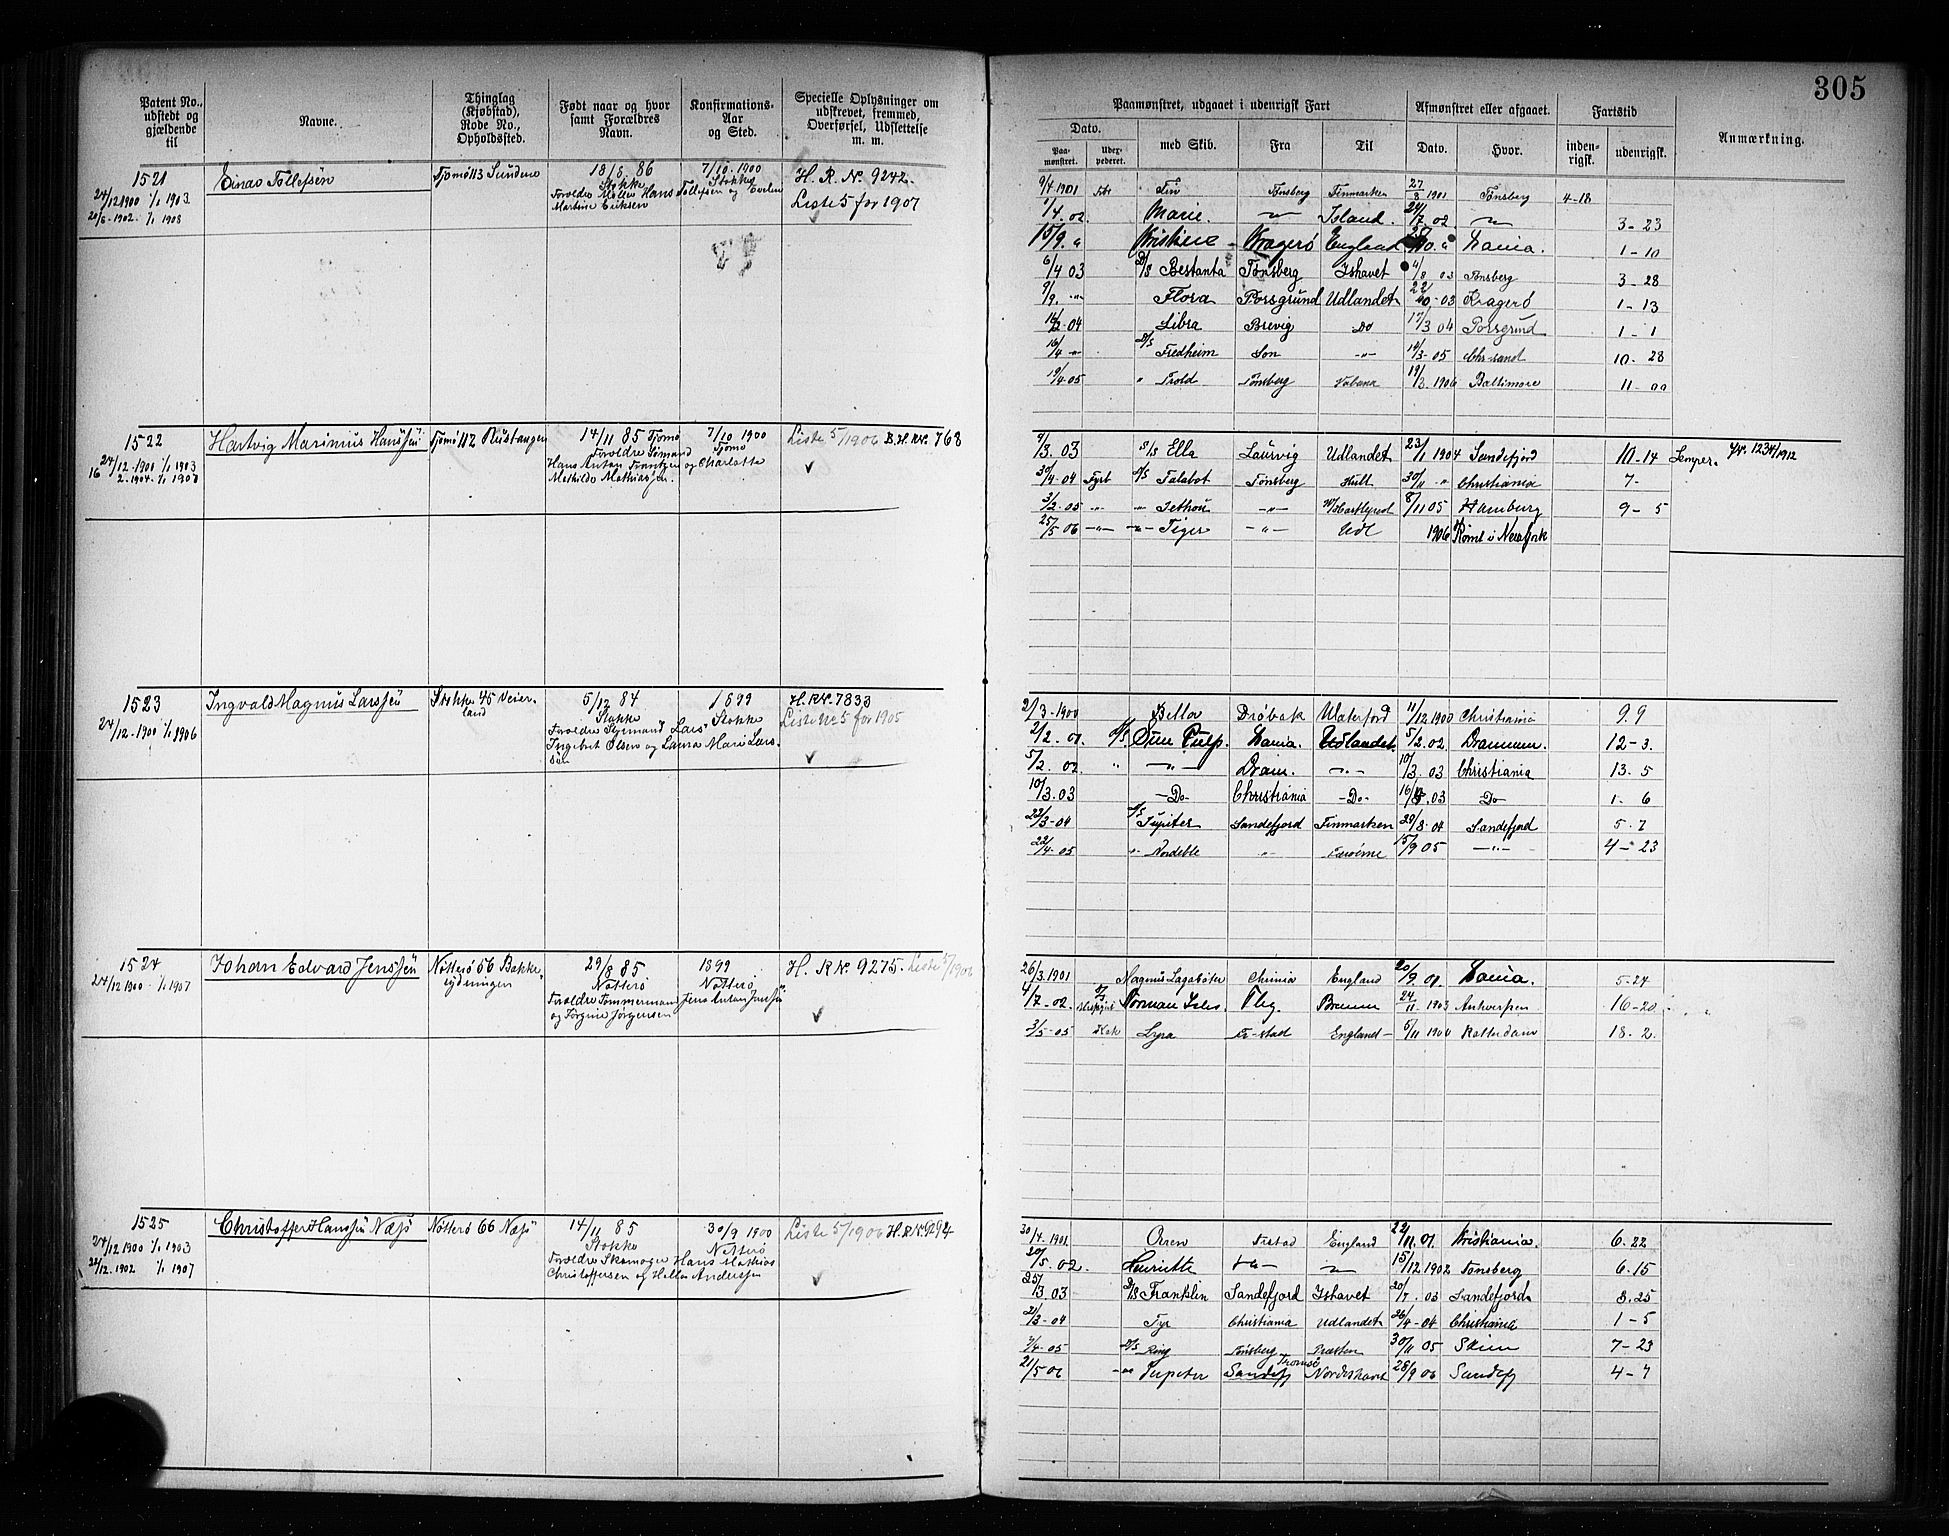 305
Patent No., udstedt og gjældende til
Navne.
Thinglag (Kjøbstad), Rode No., Opholdssted.
Født naar og hvor samt Forældres Navn.
Konfirmations-Aar og Sted.
Specielle Oplysninger om udskrevet, fremmed, Overførsel, Udslettelse m. m.
Paamønstret, udgaaet i udenrigsk Fart
Afmønstret eller afgaaet.
Fartstid
Anmærkning.
Dato.
Paa-mønstret.
Udex-pederet.
med Skib.
Fra
Til
Dato.
Hvor.
inden-rigsk.
udenrigsk.
1521
24/12 1900 1/1 1903
20/6-1902. 1/1 1908
Einar Tollefsen
Tjømø 113 Sundene
18/8. 86
Stokke
Forældre Møller Hans Tollefsen og Eveline
Martine Eriksen
7/10. 1900
Stokke
H. R. N. 9242.
Liste 5 for 1907
9/4 1901 Fin Tønsberg Finmarken 27/8 1901 Tønsberg 4-18
1/4. 02. Marie. -"- Island. 24/7 02. -"- 3-23
15/9. " Kristine Kragerø England " Lania. 1-10
6/4 03 D/S Bestanta Tønsberg Ishavet 4/8 03 Tønsberg 3-28
9/9. -"- Flora Porsgrund Udlandet 22/10-03 Kragerø 1-13
16/2-04 Libra Brevig Do 17/3 04 Porsgrund 1-1
16/4 -"- D/S Fredheim Son -"- 14/3-05 Chr-sand 10-28
19/4-05 " Trold Tønsberg 19/3. 1906 Baltimore 11-00
1522
24/12-1900 1/1 1903
16 2.-1904.-1/1 1907
Hartvig Marinius Hanssen
Tjømø 112 Rustangen
14/11 85 Tjømø
Forældre Sømand
Hans Anton Frantzen og Charlotte
Mathilde Mathiassen.
7/10 1900
Tjømø
Liste 5/1906 B.H.RN. 768
4/3. 03 S/S Ella Laurvig Udlandet 23/1 1904 Sandefjord 10-14 Nr. 1234/1912
30/4-04 Fyrb D/S Talabot Tønsberg Hull 30/11 -"- Christiania 7-
3/2-05 -"- " Jethou -"- W/Hartlepool 8/11 05 Hamburg 9-5
25/5-06 -"- -"- Tiger -"- Udl 1906 Rømt i Newyork
1523
24/12-1900 1/1 1906
Ingvald Magnus Larssen
Stokke 45 Veierland
5/12 84
Stokke
Forældre Sømand Lars
Ingebret Olsen og Laura Marie Larssen
1899
Stokke
H.RN. 7833
Liste No 5 for 1905
2/3-1900 Bella Drøbak Waterford 11/12 1900 Christiania 9.9
2/2. 01. D/S Sun Pulp. Lania. Udlandet. 5/2. 02. Drammen. 12-3.
5/2. 02. " -"- Dram. -"- 10/3. 03 Christiania 13. 5
10/3. 03 -Do- Christiania -Do- 03 Do 1-6
22/3-04 D/S Jupiter Sandefjord Finmarken 29/8-04 Sandefjord 5-7
22/4-05 " " 15/9 05 -"- 4-23
1524
24/12 1900.-1/1 1907
Johan Edvard Jenssen
Nøtterø 56 Bakke-rydningen
29/8 85
Nøtterø
Forældre Tømmermand Jens Anton Jenssen
og Jørgine Jørgensen
1899
Nøtterø
H. RN. 9275. Liste 5/1906
26/3. 1901 Magnus Lagabøter Chinia England 20/9. 01. Lania. 5-24
4/7-02. D/S Norman Isles. Tbg. Bremen 24/11-1903 Antwerpen 16-20
3/5-05 Kok Lyra Fr-stad England- 5/11 1906 Rotterdam 18-2.
1525
24/12 1900 1/1 1903
22/12. 1902 1/1 1907
Christoffer Hanssen Næsø
Nøtterø 66 Næsø
14/11 85
Stokke
Forældre Skomager Hans Mathias
Christoffersen og Hella Anderssen
30/9 1900
Nøtterø
Liste 5/1906 H.RN. 9294
30/4. 1901 Orren Frstad England 22/11. 01. Kristiania. 6-22
20/5. 02. Henriette -"- -"- 15/12 1902 Tønsberg 6.15
25/3. 03 D/S Franklin Sandefjord Ishavet 20/7. 03 Sandefjord. 3.25
21/3-04 Tyr Christiania Udlandet 26/4-04 Christiania 1-5
7/4-05 D/S Ring Tønsberg Præsten 30/11 05 Skien 7-23
21/5-06 -"- Jupiter Sandefj Tromsø Nordishavet 28/9 06 Sandefj 4-7